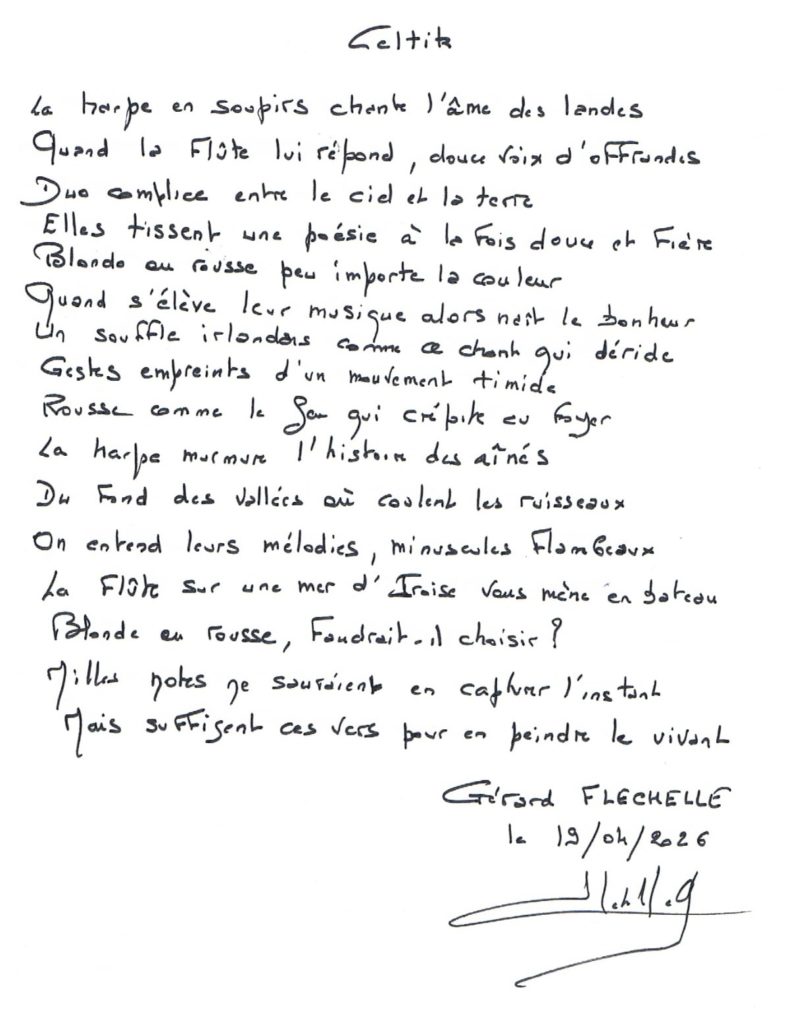 Celtik
La harpe en soupirs chante l'âme des landes
Quand la Flûte lui répond, douce voix d'offrandes
Duo complice entre le ciel et la terre
Elles tissent une poésie à la fois douce et Fière
Blonde ou rousse peu importe la couleur
Quand s'élève leur musique alors naît le bonheur
Un souffle irlandais comme ce chant qui déride
Gestes empreints d'un mouvement timide
Rousse comme le feu qui crépite au foyer
La harpe murmure l'histoire des aînés
Du Fond des vallées où coulent les ruisseaux
On entend leurs mélodies, minuscules Flambeaux
La Flûte sur une mer d'Iroise vous mène en bateau
Blonde ou rousse, Faudrait-il choisir ?
Milles notes ne sauraient en capturer l'instant
Mais suffisent ces vers pour en peindre le vivant
Gérard FLECHELLE
le 19/04/2026